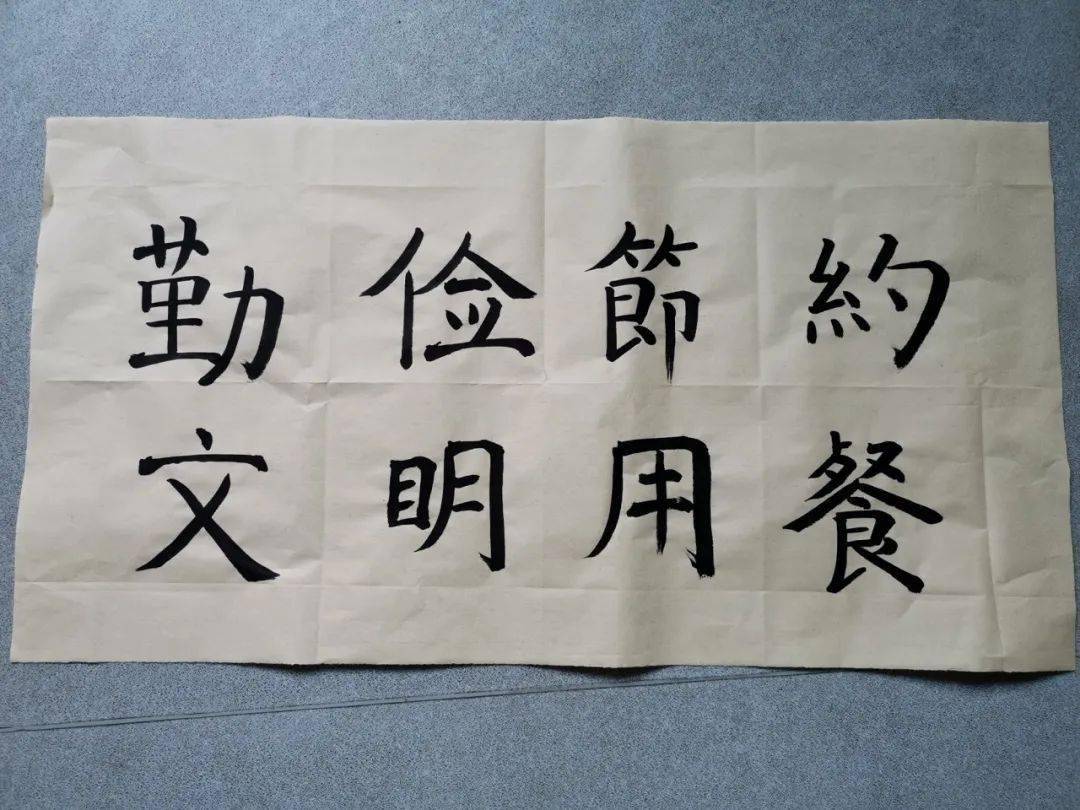 勤俭節約
文明用餐